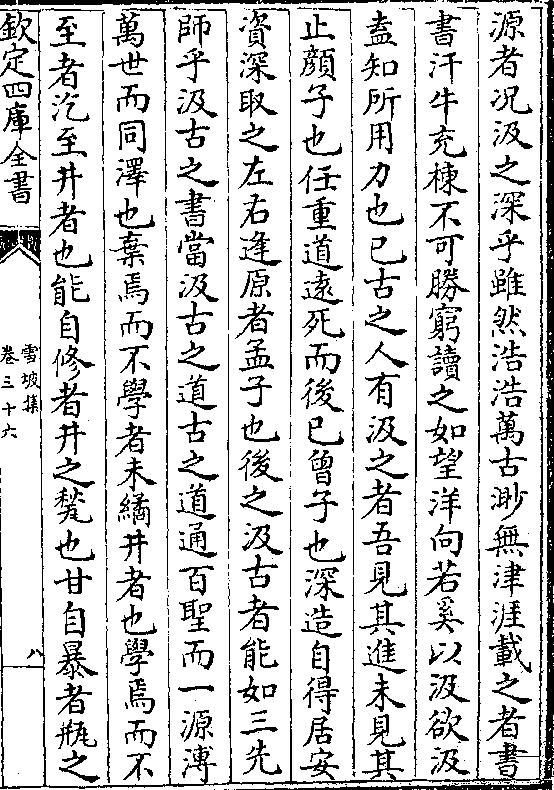 源者況汲之深乎雖然浩浩萬古渺無津涯載之者書
書汗牛充棟不可勝窮讀之如望洋向若奚以汲欲汲
盍知所用力也已古之人有汲之者吾見其進未見其
止顔子也任重道逺死而後已曽子也深造自得居安
資深取之左右逢原者孟子也後之汲古者能如三先
師乎汲古之書當汲古之道古之道通百聖而一源溥
萬世而同澤也棄焉而不學者未繘井者也學焉而不
至者汔至井者也能自修者井之甃也甘自暴者瓶之
欽定四庫全書
雪坡集
卷三十六
八